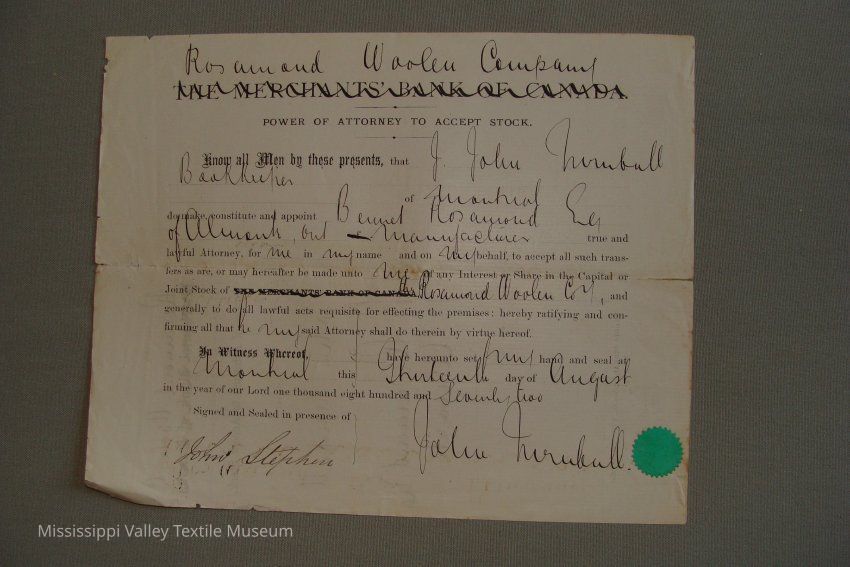 Rosamond Woolen Company
THE MERCHANTS' BANK OF CANADA.
POWER OF ATTORNEY TO ACCEPT STOCK.
Know all Men by these presents, that I, John Turnbull
Bookkeeper of Montreal
do make, constitute and appoint Bennet Rosamond Esq
of Almonte, Ont manufacturer true and
lawful Attorney, for me in my name and on my behalf, to accept all such trans-
fers as are, or may hereafter be made unto me of any Interest or Share in the Capital or
Joint Stock of THE MERCHANTS' BANK OF CANADA, the Rosamond Woolen Coy, and
generally to do all lawful acts requisite for effecting the premises; hereby ratifying and con-
firming all that he my said Attorney shall do therein by virtue hereof.
In Witness Whereof, I have hereunto set my hand and seal at
Montreal this Thirteenth day of August
in the year of our Lord one thousand eight hundred and Seventy two
Signed and Sealed in presence of
John Stephen
John Turnbull.
Mississippi Valley Textile Museum